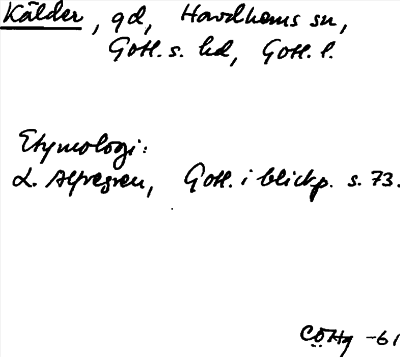 Kälder, gd, Havdhems sn,
Gotl. s. hd, Gotl. l.
Etymologi:
L. Alfvegren, Gotl. i blickp. s. 73.
CÖHg -61